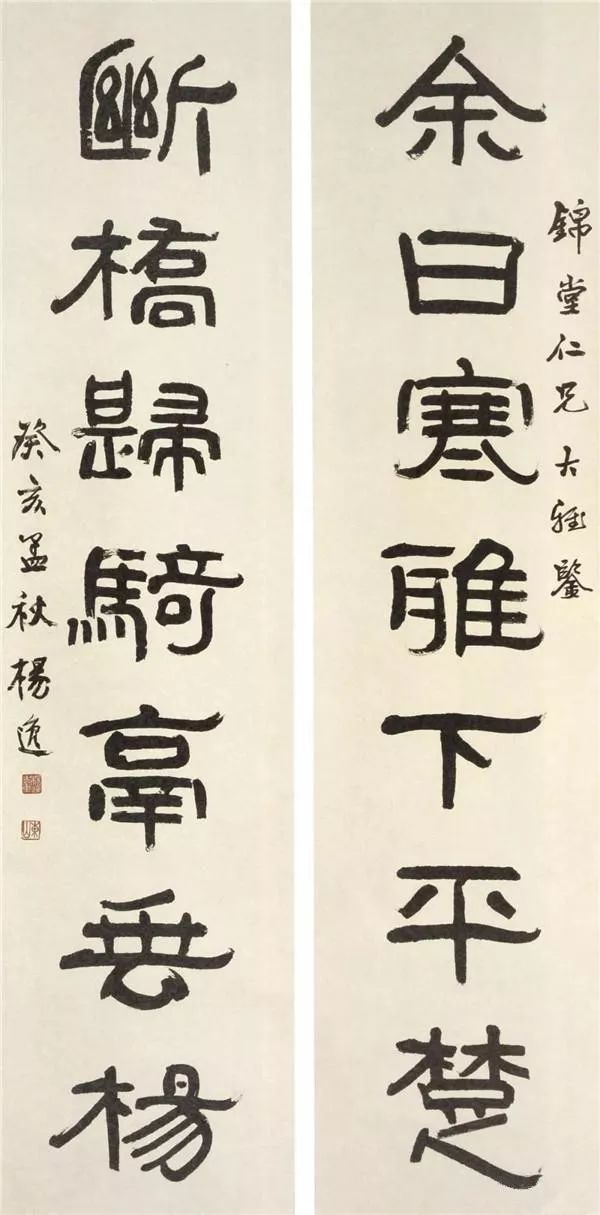 錦堂仁兄大雅鑒
余日寒雅下平楚
斷橋歸騎垂楊
癸亥孟秋楊逸